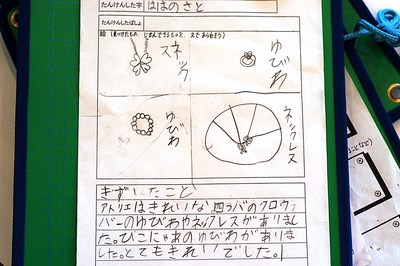 たんけんした子 ははのさと
たんけんしたばしょ
絵
ネックレス
ゆびわ
ゆびわ
ネックレス
きずいたこと
アトリエはきれいな 四つバのクロウ
バーのゆびわやネックレスがありまし
た。ひこにゃんのゆびわがありま
した。とてもきれいでした。